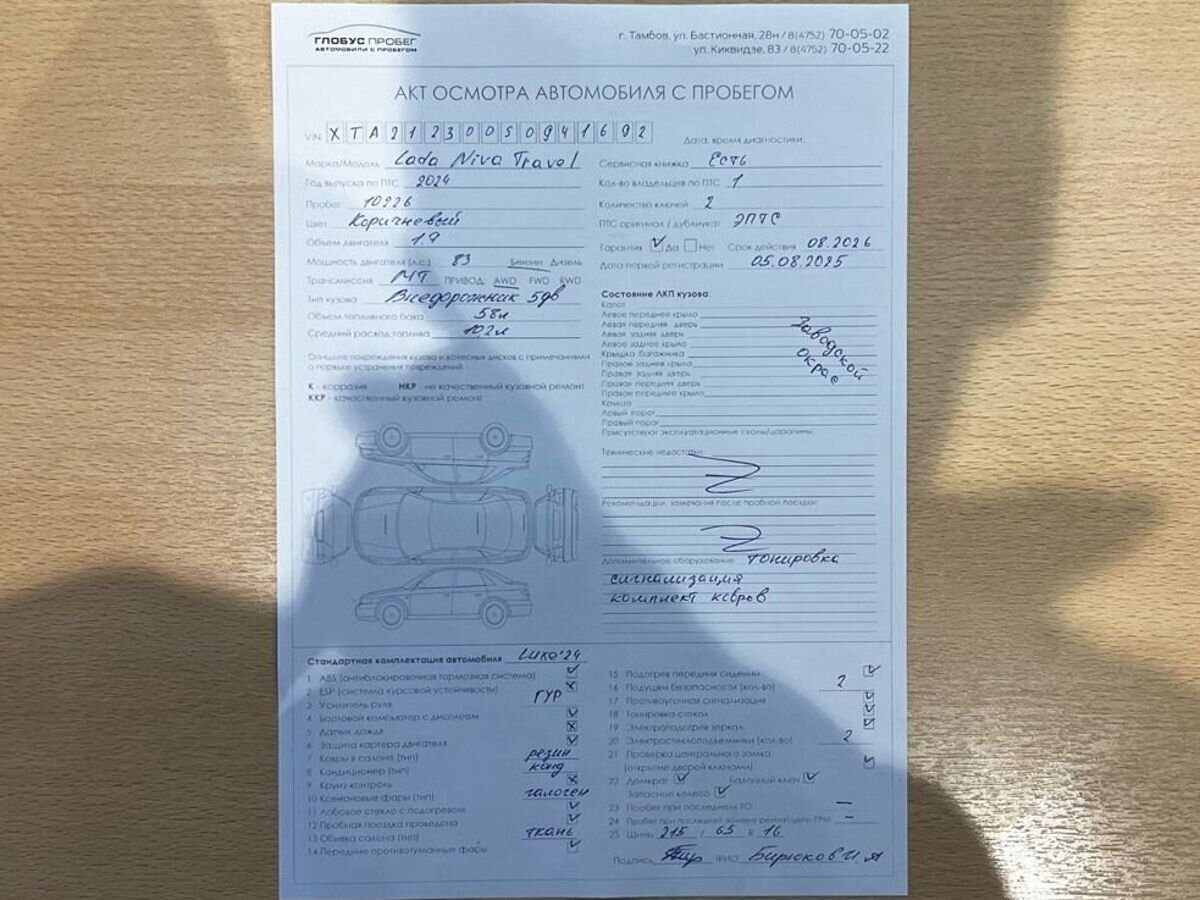 ГЛОБУС ПРОБЕГ
АВТОМОБИЛИ С ПРОБЕГОМ
г. Тамбов, ул. Бастионная, 28н / 8(4752) 70-05-02
ул. Киквидзе, 83 / 8(4752) 70-05-22
АКТ ОСМОТРА АВТОМОБИЛЯ С ПРОБЕГОМ
VIN XTA212300S0941692
Дата, время диагностики:
Марка/Модель Lada Niva Travel
Год выпуска по ПТС 2024
Пробег 10226
Цвет Коричневый
Объем двигателя 1.7
Мощность двигателя (л.с.) 83 Бензин Дизель
Трансмиссия МТ ПРИВОД: AWD FWD RWD
Тип кузова Внедорожник 5дв
Объем топливного бака 58л
Средний расход топлива 10,2л
Опишите повреждения кузова и колесных дисков с примечаниями
о порядке устранения повреждений
К - коррозия НКР - не качественный кузовной ремонт
ККР - качественный кузовной ремонт
Сервисная книжка Есть
Кол-во владельцев по ПТС 1
Количество ключей 2
ПТС оригинал / дубликат ЭПТС
Гарантия Да Нет Срок действия 08.2026
Дата первой регистрации 05.08.2025
Состояние ЛКП кузова
Капот
Левое переднее крыло
Левая передняя дверь
Левая задняя дверь
Левое заднее крыло
Крышка багажника
Правое заднее крыло
Правая задняя дверь
Правая передняя дверь
Правое переднее крыло
Крыша
Левый порог
Правый порог
Заводской
окрас
Присутствуют эксплуатационные сколы/царапины.
Технические недостатки:
Рекомендации, замечания после пробной поездки:
Дополнительное оборудование: тонировка
сигнализация
комплект ковров
Стандартная комплектация автомобиля Luxe'24
1 ABS (антиблокировочная тормозная система)
2 ESP (система курсовой устойчивости)
3 Усилитель руля ГУР
4 Бортовой компьютер с дисплеем
5 Датчик дождя
6 Защита картера двигателя
7 Ковры в салоне (тип) резин
8 Кондиционер (тип) конд
9 Круиз контроль
10 Ксеноновые фары (тип) галоген
11 Лобовое стекло с подогревом
12 Пробная поездка проведена
13 Обивка салона (тип) ткань
14 Передние противотуманные фары
15 Подогрев передних сидений
16 Подушки безопасности (кол-во) 2
17 Противоугонная сигнализация
18 Тонировка стекол
19 Электроподогрев зеркал
20 Электростеклоподъемники (кол во) 2
21 Проверка центрального замка
(открытие дверей ключами)
22 Домкрат Балонный ключ
Запасное колесо
23 Пробег при последнем ТО —
24 Пробег при последней замене ремня/цепи ГРМ —
25 Шины 215 / 65 R 16
Подпись ФИО Бирюков И.А